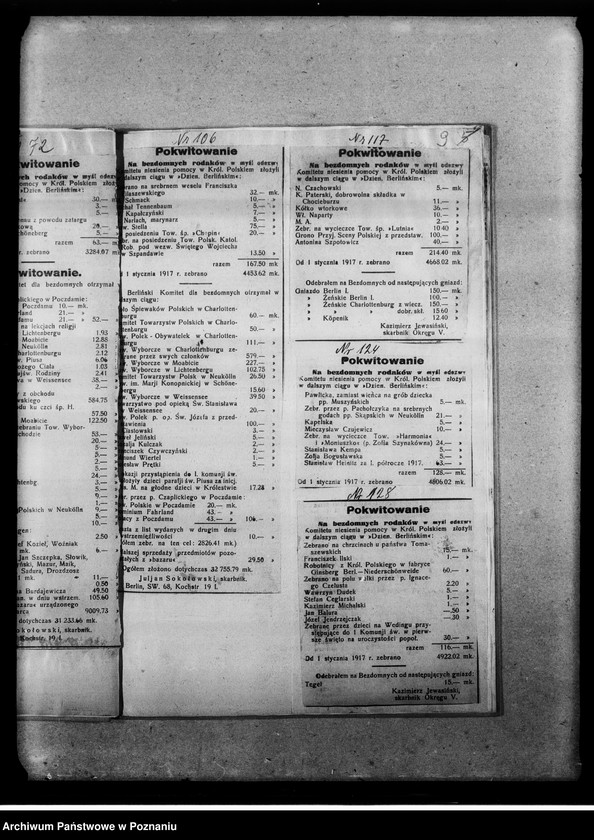 72
kwitowanie
ch rodaków w myśl
pomocy w Król. Polskiem złoż
»Dzien. Berlińskim«:
30.— mk.
3.— »
5.— »
enna z powodu zatargu
20.— »
chöneberg
5.— »
razem 63.— mk.
r. zebrano 3284.07 mk.
witowanie.
tet dla bezdomnych otrzymał
plickiego w Poczdamie:
Poczdamu 10.— mk.
21.— »
21.— » 52.— »
na lekcjach religji
Lichtenbergu 1.93
Moabicie 12.88
Neukölln 2.81
harlottenburgu 2.12
w. Piusa 6.06
ożego Ciała 1.03
więw. Rodziny 2.41
w Weissensee 38.—
2.—
z obchodu
wskiego 584.75
du ku czci śp. H.
57.50
Moabicie 122.50
ebraniu Tow. Wybor-
chodzie 83.—
20.—
5.—
5.—
2.—
5.—
24.—
htenbg. 3.—
5.—
9.—
1.—
Polskich w Neukölln 9.—
5.—
10.—
gen:
2.50 »
zef Kozieł, Woźniak
mk. 6.— »
Jan Szczepka, Słowik,
yński, Mazur, Maik,
Sadura, Drozdzona
1 mk. 11.— »
0.50
wa Burdajewicza 49.50
an. w dniu wstrzem. 105.60
azaru« urządzonego
arca 9009.73
dotychczas 31 233.66 mk.
okołowski, skarbnik.
Kochstr. 19 I.
Nr 106
Pokwitowanie
Na bezdomnych rodaków w myśl odezwy
omitetu niesienia pomocy w Król. Polskiem złożyli
dalszym ciągu w »Dzien. Berlińskim«:
brano na srebrnem weselu Franciszka
Błaszawskiego 32.— mk.
Schmack 10.— »
chał Tennenbaum 5.— »
Kapałczyński 7.— »
Nariach, marynarz 5.— »
w. Stella 75.— »
posiedzeniu Tow. śp. »Chopin« 20.— »
br. na posiedzeniu Tow. Polsk. Katol.
Rob. pod wezw. Świętego Wojciecha
w Szpandawie 13.50 »
razem 167.50 mk.
1 stycznia 1917 r. zebrano 4453.62 mk.
Berliński Komitet dla bezdomnych otrzymał w
alszym ciągu:
oło Śpiewaków Polskich w Charlotten-
burgu 60.— mk.
omitet Towarzystw Polskich w Charlo-
tenburgu 50.— »
w. Polek - Obywatelek w Charlotten-
burgu 111.— »
w. Wyborcze w Charlottenburgu ze-
rane przez swych członków 579.— »
w. Wyborcze w Moabicie 227.— »
w. Wyborcze w Lichtenbergu 102.75 »
mitet Towarzystw Polsk w Neukölln 26.50 »
w. im. Marji Konopnickiej w Schöne-
bergu 15.60 »
w. Wyborcze w Weissensee 39.50 »
warzystwo pod opieką Św. Stanisława
w Weissensee 20.— »
w. Polek p. op. Św. Józefa z przed-
tawienia 100.— »
Ciastowski 3.— »
zef Jeliński 5.— »
zalja Kulczak 2.— »
nciszek Czywczyński 2.— »
mund Wiertel 1.— »
esław Prętki 5.— »
okazji przystąpienia do I. komunji św.
złożyły dzieci parafji św. Piusa za inicj.
. M. na głodne dzieci w Królestwie 17.25 »
br. przez p. Czaplickiego w Poczdamie:
w. Polskie w Poczdamie 20.— mk.
minium Fahrland 43.— »
acy z Poczdamu 43.— » 106.— »
ata z list wydanych w drugim dniu
wstrzemięźliwości 10.— »
ółem zebr. na ten cel: 2826.41 mk.)
alszej sprzedaży przedmiotów pozo-
tałych z »bazaru« 29.50 »
Ogółem złożono dotychczas 32 755.79 mk.
Juljan Sokołowski, skarbnik.
Berlin, SW. 68, Kochstr 19 I.
Nr 117
9
Pokwitowanie
Na bezdomnych rodaków w myśl odezwy
Komitetu niesienia pomocy w Król. Polskiem złożyli
w dalszym ciągu w »Dzien. Berlińskim«:
N. Czachowski 5.— mk.
K. Paterski, dobrowolna składka w
Chocieburzu 11.— »
Kółko wtorkowe 36.— »
Wł. Naparty 10.— »
M. A. 2.— »
Zebr. na wycieczce Tow. śp. »Lutnia« 10 40 »
Grono Przyj. Sceny Polskiej z przedsław. 100.— »
Antonina Szpotowicz 40.— »
razem 214.40 mk.
Od 1 stycznia 1917 r. zebrano 4668.02 mk.
Odebrałem na Bezdomnych od następujących gniazd:
Gniazdo Berlin I. 150.— mk.
» Żeńskie Berlin I. 100.— »
» Żeńskie Charlottenburg z wiecz. 150.— »
» » » dobr. skł. 15.60 »
» Köpenik 12.40 »
Kazimierz Jewasiński,
skarbnik Okręgu V.
Nr 124
Pokwitowanie
Na bezdomnych rodaków w myśl odezwy
Komitetu niesienia pomocy w Król. Polskiem złożyli
w dalszym ciągu w »Dzien. Berlińskim«:
Pawlicka, zamiast wieńca na grób dziecka
pp. Muszyńskich 5.— mk.
Zebr. przez p. Pachołczyka na srebrnych
godach pp. Skąpskich w Neukölln 21.— »
Kapelska 5.— »
Mieczysław Czujewicz 10.— »
Zebr. na wycieczce Tow. »Harmonia«
i »Moniuszko« (p. Zofia Szynakówna) 24.— »
Stanisława Kempa 5.— »
Zofja Bogusławska 5.— »
Stanisław Heinitz za I. półrocze 1917. 63.— »
razem 128.— mk.
Od 1 stycznia 1917 r. zebrano 4806.02 mk.
Nr 128
Pokwitowanie
Na bezdomnych rodaków w myśl odezwy
Komitetu niesienia pomocy w Król. Polskiem złożyli
w dalszym ciągu w »Dzien. Berlińskim«:
Zebrano na chrzcinach u państwa Toma-
szewskich 15.— mk.
Franciszek Ilski 1.— »
Robotnicy z Król. Polskiego w fabryce
Ginsberg Berl.-Niederschönweide 60.— »
Zebrano na polu wilki przez p. Ignace-
go Czelusta 2.20 »
Wawrzyn Dudek 5.— »
Stefan Ceglarski 1.— »
Kazimierz Michalski 1.— »
Jan Balara —.50 »
Józef Jendrzejczak —.30 »
Zebrane przez dzieci na Wedingu przy-
stępujące do I Komunji św. w pierw-
sze święto na uroczystości popoł. 30.— »
razem 116.— mk.
Od 1 stycznia 1917 r. zebrano 4922.02 mk.
Odebrałem na Bezdomnych od następujących gniazd:
Tegel 15.— mk.
Kazimierz Jewasiński,
skarbnik Okręgu V.
Archiwum Państwowe w Poznaniu